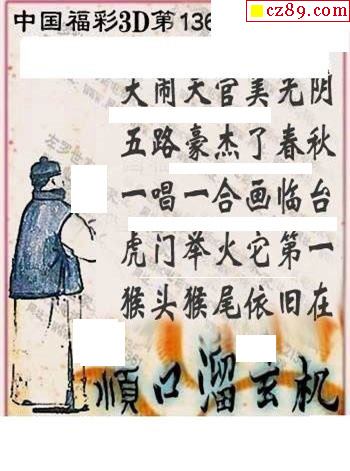 cz89.com
中国福彩3D第136
大闹天宫美光阴
五路豪杰了春秋
一唱一合画临台
虎门举火它第一
猴头猴尾依旧在
順口溜玄机